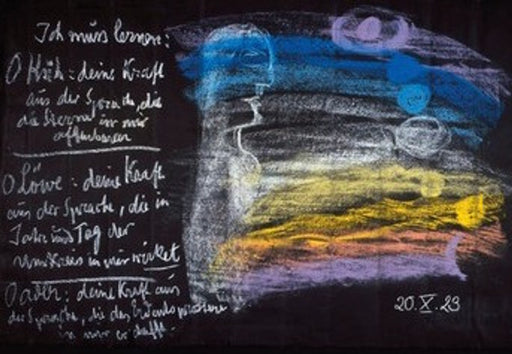 Ich muss lernen:
O Kuh: deine Kraft
aus der Sprache, die
die Sterne in mir
offenbaren
O Löwe: deine Kraft
aus der Sprache, die in
Jahr und Tag der
Umkreis in mir wirket
O Adler: deine Kraft aus
der Sprache, die das
in mir
20.X.23